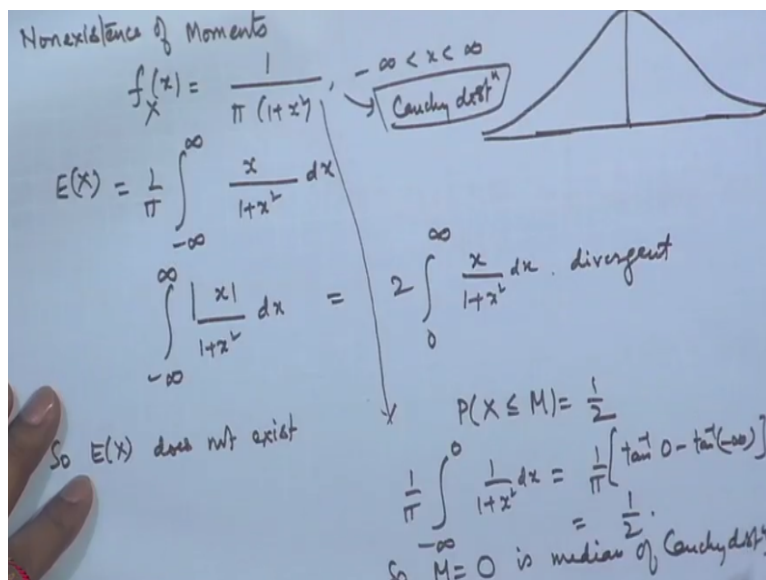 Nonexistence of Moments
f_X(x) = 1 / π(1+x²), -∞ < x < ∞
→ Cauchy distⁿ
E(X) = 1/π ∫_{-∞}^{∞} x / 1+x² dx
∫_{-∞}^{∞} |x| / 1+x² dx = 2 ∫_0^∞ x / 1+x² dx. divergent
So E(X) does not exist
P(X ≤ M) = 1/2
1/π ∫_{-∞}^0 1 / 1+x² dx = 1/π [tan⁻¹ 0 - tan⁻¹(-∞)]
= 1/2.
So M = 0 is median of Cauchy distⁿ